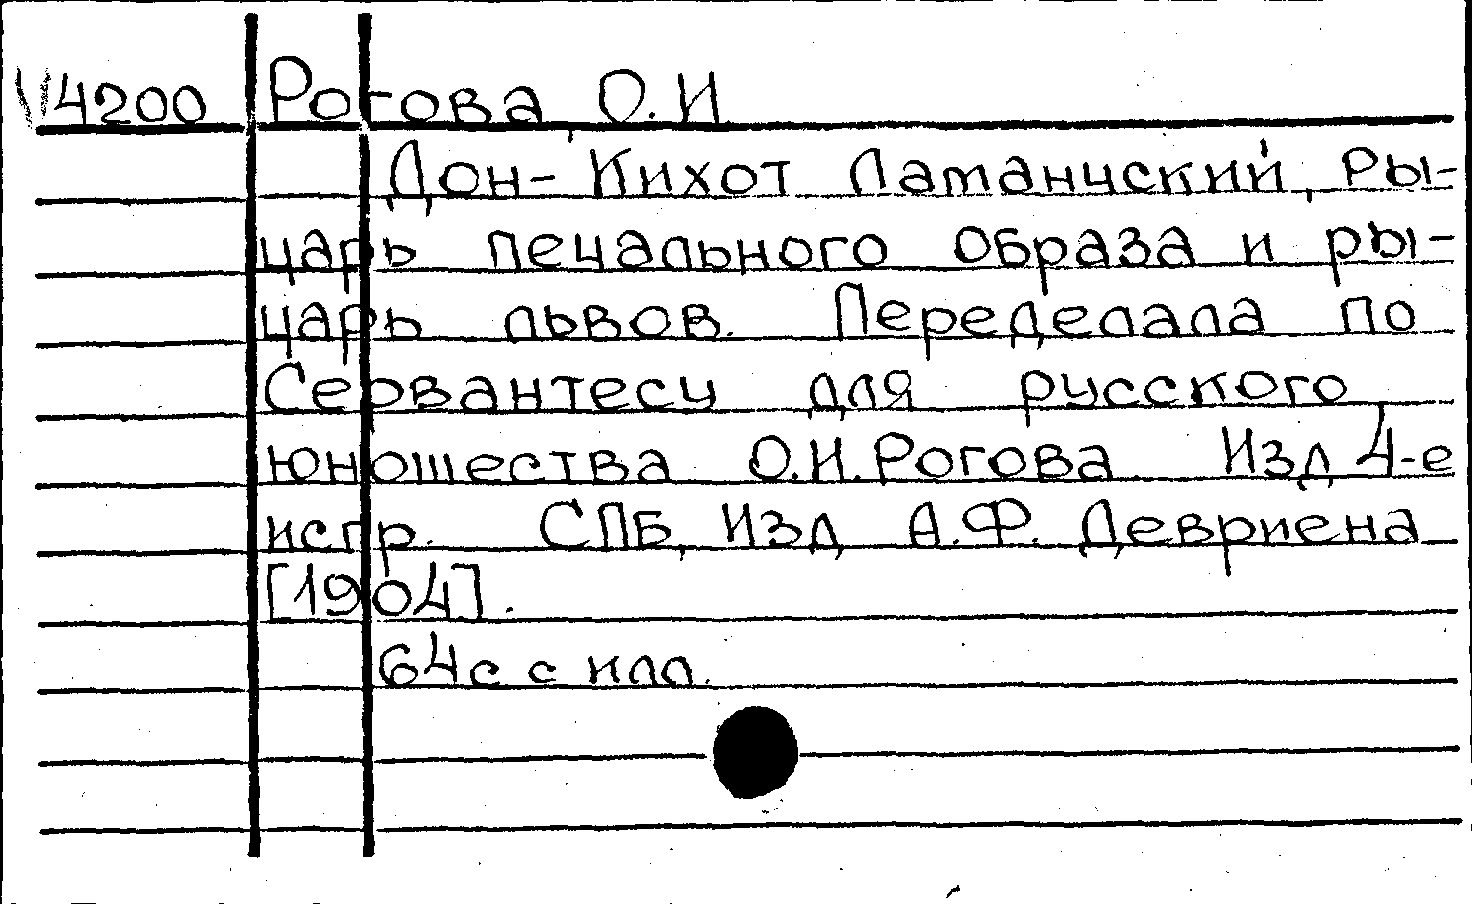 4200 Рогова О.И.
Дон-Кихот Ламанчский, Ры-
царь печального образа и ры-
царь львов. Переделала по
Сервантесу для русского
юношества О.И.Рогова Изд 4-е
испр. СПБ, Изд А.Ф. Девриена
[1904].
64с с илл.